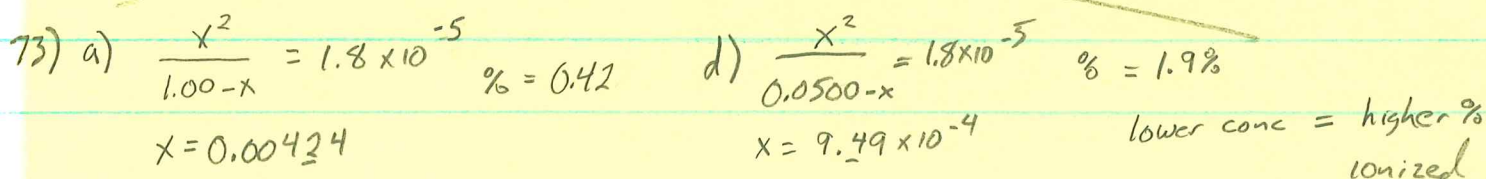 73) a) x² / 1.00-x = 1.8 x 10⁻⁵ % = 0.42
x = 0.00424
d) x² / 0.0500-x = 1.8x10⁻⁵ % = 1.9%
x = 9.49 x 10⁻⁴
lower conc = higher %
ionized